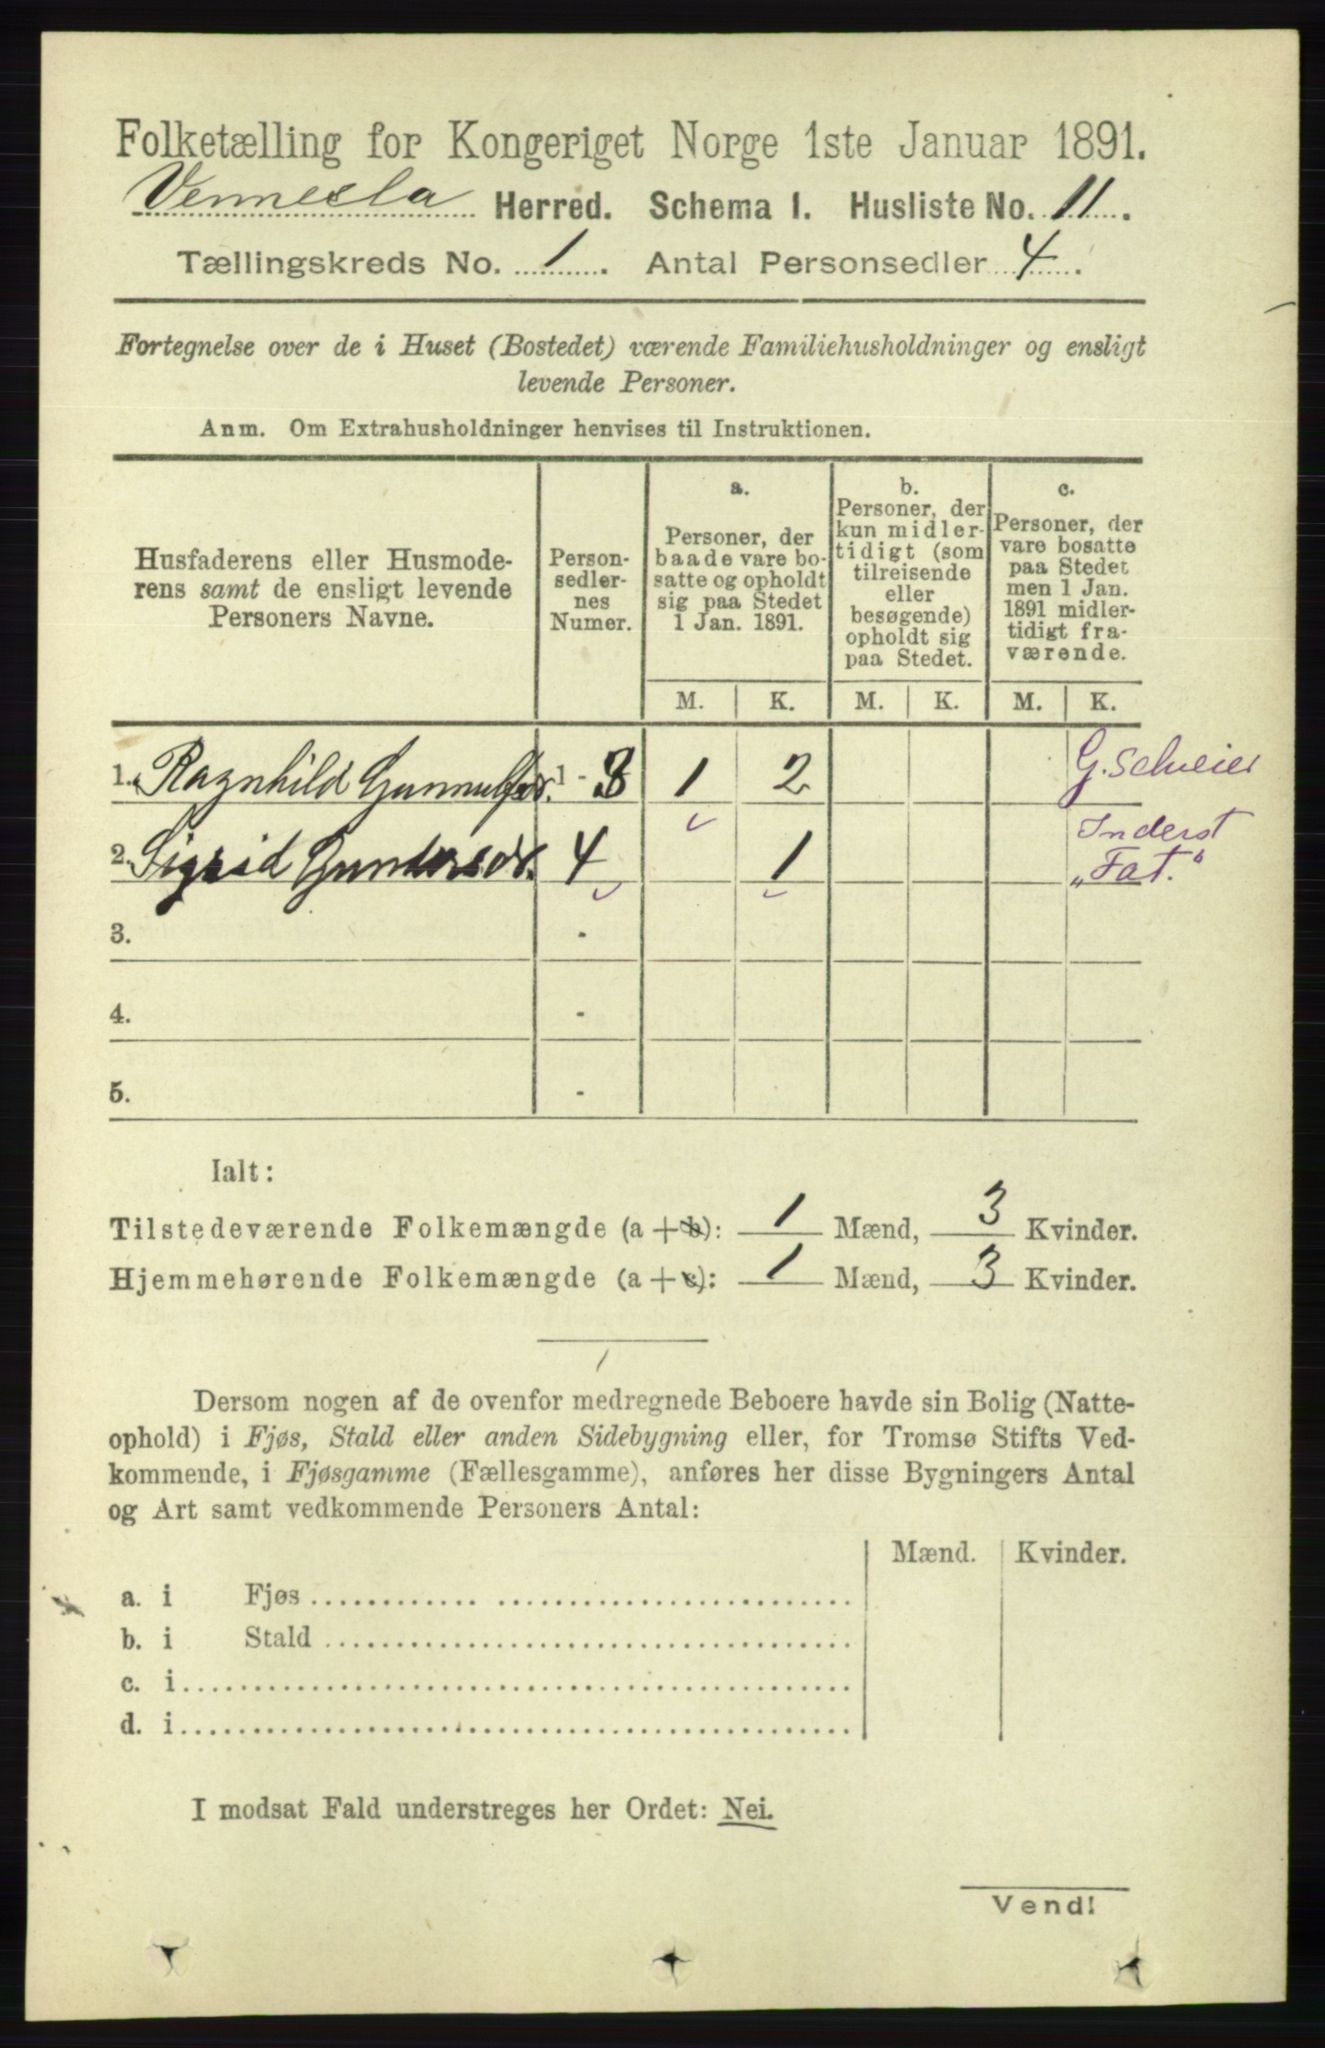 Folketælling for Kongeriget Norge 1ste Januar 1891.
Vennesla Herred. Schema 1. Husliste No. 11.
Tællingskreds No. 1. Antal Personsedler 4.
Fortegnelse over de i Huset (Bostedet) værende Familiehusholdninger og ensligt
levende Personer.
Anm. Om Extrahusholdninger henvises til Instruktionen.
Husfaderens eller Husmode-
rens samt de ensligt levende
Personers Navne.
Person-
sedler-
nes
Numer.
a.
Personer, der
baade vare bo-
satte og opholdt
sig paa Stedet
1 Jan. 1891.
b.
Personer, der
kun midler-
tidigt (som
tilreisende
eller
besøgende)
opholdt sig
paa Stedet.
c.
Personer, der
vare bosatte
paa Stedet
men 1 Jan.
1891 midler-
tidigt fra-
værende.
M. K. M. K. M. K.
1. Ragnhild Gunnulfsdr. 1 - 3 1 2 G. Selveier
2. Sigrid Gundersdr. 4 1 Inderst
„Fat."
3. -
4. -
5. -
Ialt:
Tilstedeværende Folkemængde (a + b): 1 Mænd, 3 Kvinder.
Hjemmehørende Folkemængde (a + c): 1 Mænd, 3 Kvinder.
Dersom nogen af de ovenfor medregnede Beboere havde sin Bolig (Natte-
ophold) i Fjøs, Stald eller anden Sidebygning eller, for Tromsø Stifts Ved-
kommende, i Fjøsgamme (Fællesgamme), anføres her disse Bygningers Antal
og Art samt vedkommende Personers Antal:
Mænd. Kvinder.
a. i Fjøs
b. i Stald
c. i
d. i
I modsat Fald understreges her Ordet: Nei.
Vend!